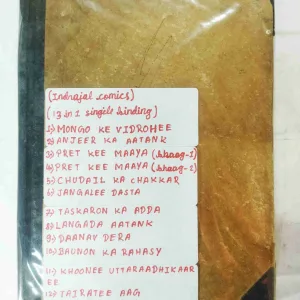 (Indrajal comics)
(13 in 1 single binding)
1) MONGO KE VIDROHEE
2) ANJEER KA AATANK
3) PRET KEE MAAYA (bhaag-1)
4) PRET KEE MAAYA (bhaag-2)
5) CHUDAIL KA CHAKKAR
6) JANGALEE DASTA
7) TASKARON KA ADDA
8) LANGADA AATANK
9) DAANAV DERA
10) BAUNON KA RAHASY
11) KHOONEE UTTARAADHIKAAR
EE
12) TAIRATEE AAG